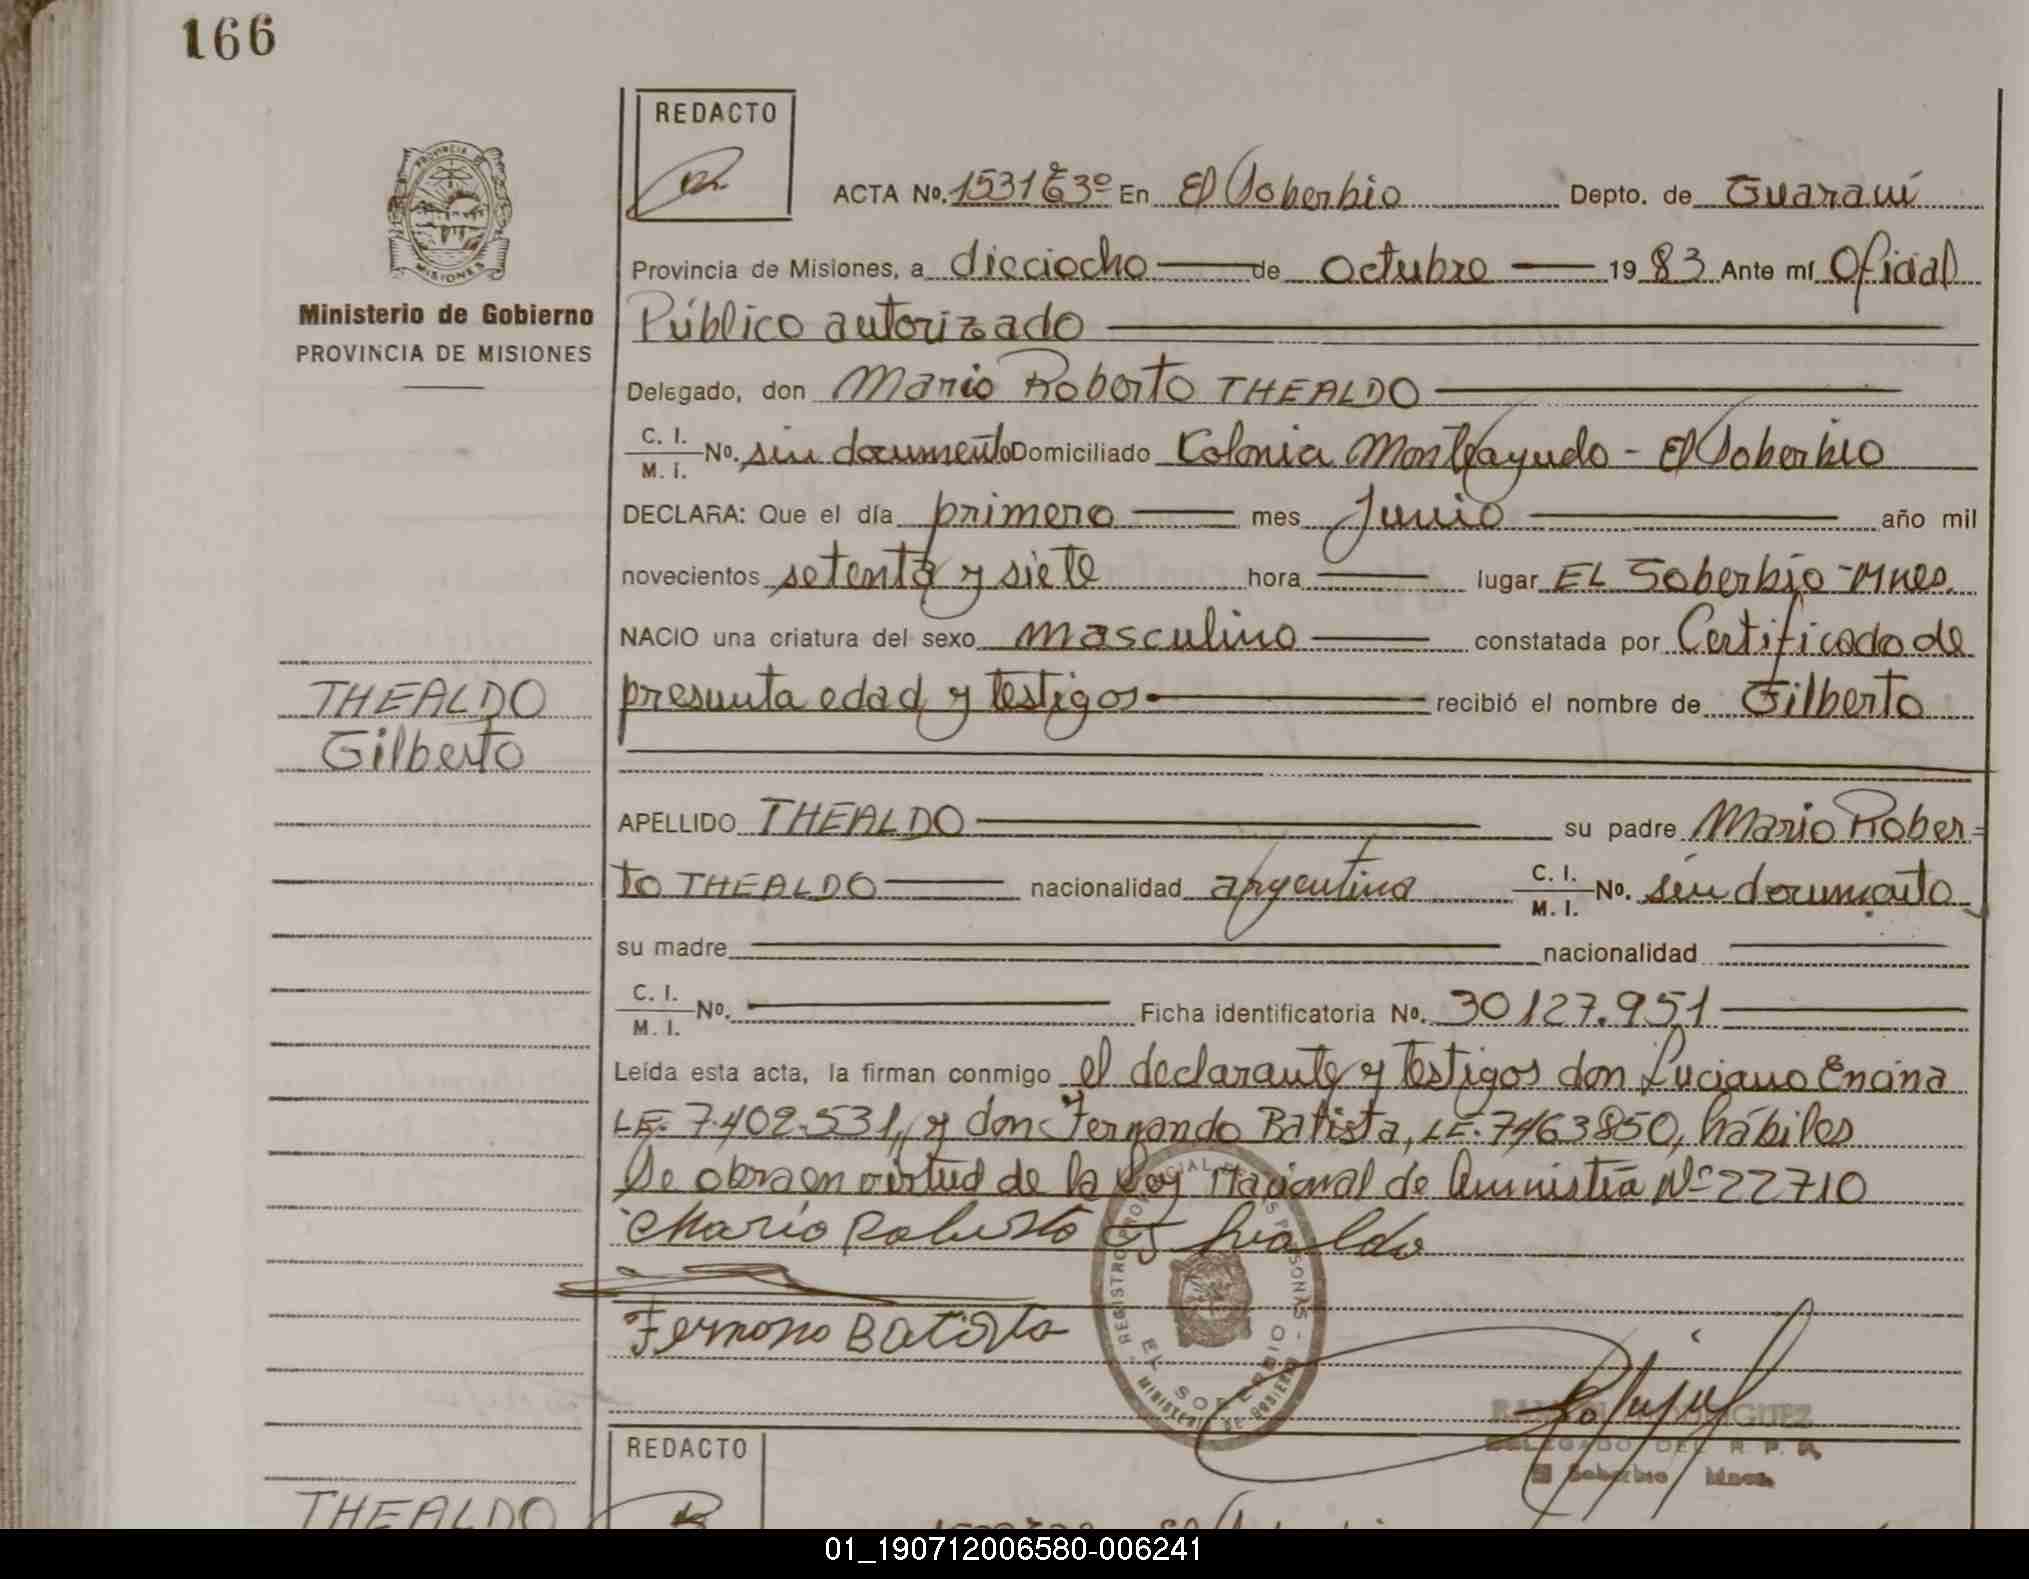 166
REDACTO
ACTA Nº. 1531 Tº 3º En El Soberbio Depto. de Guaraní
PROVINCIA DE MISIONES
Ministerio de Gobierno
PROVINCIA DE MISIONES
Provincia de Misiones, a dieciocho de octubre 19 83 Ante mí Oficial
Público autorizado
Delegado, don Mario Roberto THEALDO
C. I. / M. I. Nº. sin documento Domiciliado Colonia Monteagudo - El Soberbio
DECLARA: Que el día primero mes Junio año mil
novecientos setenta y siete hora lugar EL Soberbio - Mnes.
NACIO una criatura del sexo masculino constatada por Certificado de
presunta edad y testigos recibió el nombre de Gilberto
THEALDO
Gilberto
APELLIDO THEALDO su padre Mario Rober-
to THEALDO nacionalidad argentina C. I. / M. I. Nº. sin documento
su madre nacionalidad
C. I. / M. I. Nº. Ficha identificatoria Nº. 30127.951
Leída esta acta, la firman conmigo el declarante y testigos don Luciano Encina
LE. 7.402.531, y don Fernando Batista, LE. 7463850, hábiles
Se obra en virtud de la Ley Nacional de Amnistía Nº 22710
Mario Roberto
Batista
REGISTRO PROVINCIAL DE LAS PERSONAS
EL SOBERBIO
MINISTERIO DE GOBIERNO
DELEGADO DEL R. P. P.
El Soberbio Mnes.
REDACTO
THEALDO
01_190712006580-006241